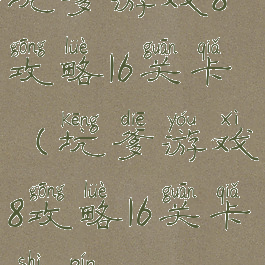 坑爹游戏8
gōng lüè guān qiǎ
攻略16关卡
kēng diē yóu xì
(坑爹游戏
gōng lüè guān qiǎ
8攻略16关卡
shì pín